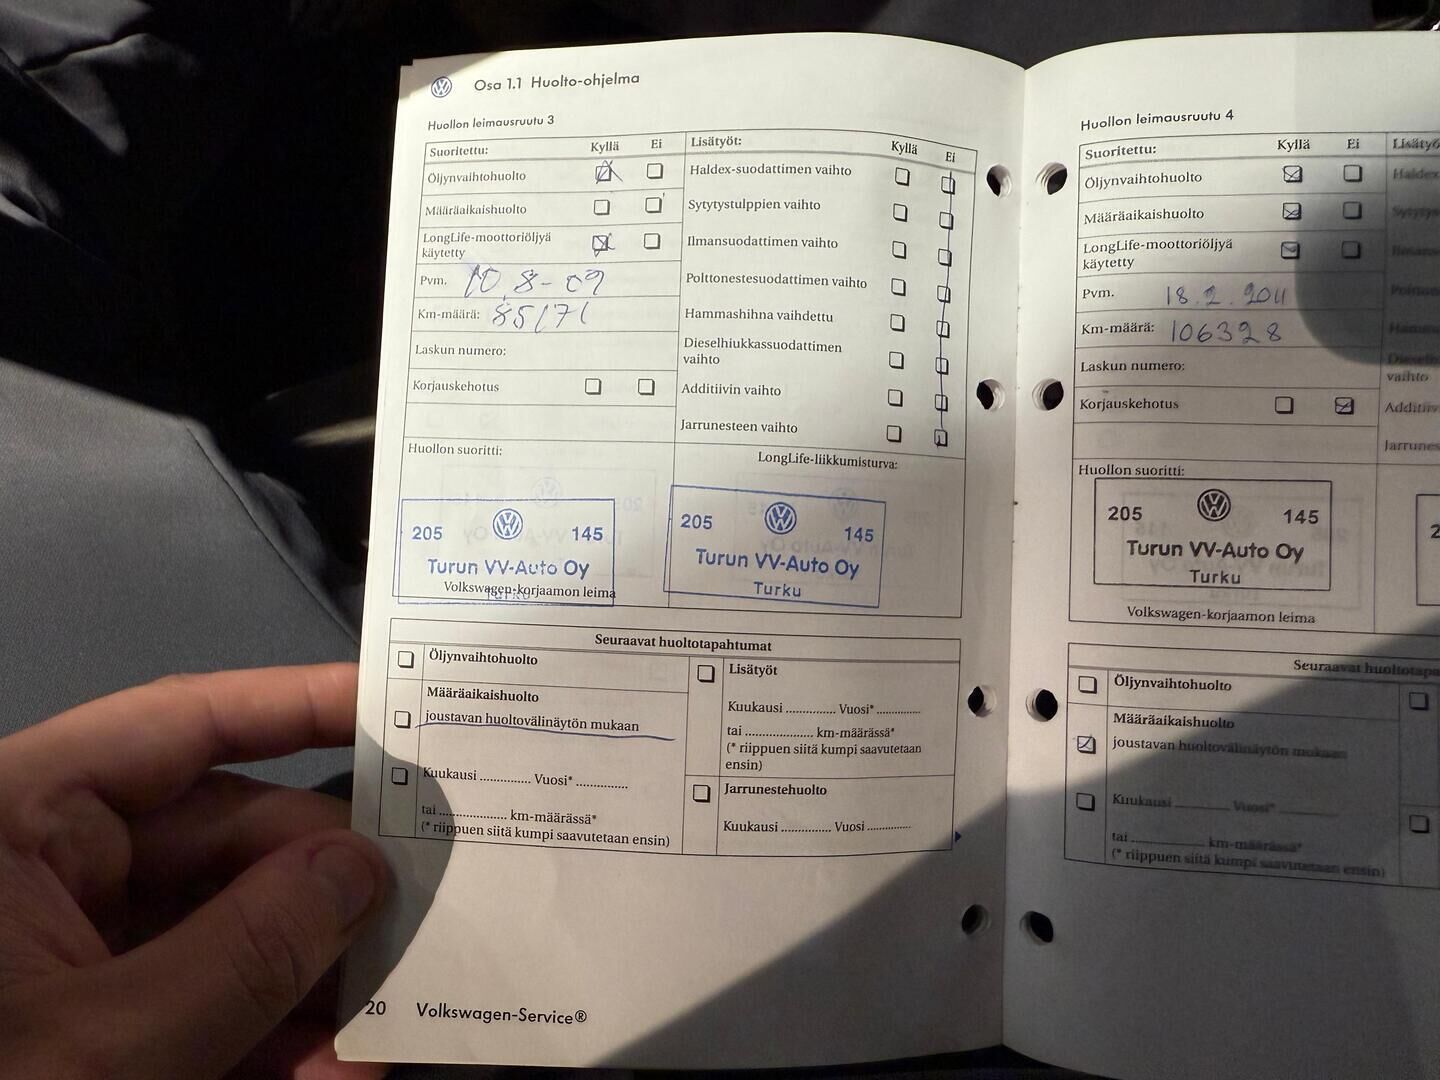 Osa 1.1 Huolto-ohjelma
Huollon leimausruutu 3
Suoritettu: Kyllä Ei
Öljynvaihtohuolto
Määräaikaishuolto
LongLife-moottoriöljyä
käytetty
Pvm. 10 8-09
Km-määrä: 85171
Laskun numero:
Korjauskehotus
Lisätyöt: Kyllä Ei
Haldex-suodattimen vaihto
Sytytystulppien vaihto
Ilmansuodattimen vaihto
Polttonestesuodattimen vaihto
Hammashihna vaihdettu
Dieselhiukkassuodattimen
vaihto
Additiivin vaihto
Jarrunesteen vaihto
Huollon suoritti:
205 145
Turun VV-Auto Oy
Turku
Volkswagen-korjaamon leima
LongLife-liikkumisturva:
205 145
Turun VV-Auto Oy
Turku
Seuraavat huoltotapahtumat
Öljynvaihtohuolto
Määräaikaishuolto
joustavan huoltovälinäytön mukaan
Kuukausi .............. Vuosi* ..............
tai ................... km-määrässä*
(* riippuen siitä kumpi saavutetaan ensin)
Lisätyöt
Kuukausi .............. Vuosi* ............
tai ................... km-määrässä*
(* riippuen siitä kumpi saavutetaan
ensin)
Jarrunestehuolto
Kuukausi .............. Vuosi ............
20 Volkswagen-Service®
Huollon leimausruutu 4
Suoritettu: Kyllä Ei
Öljynvaihtohuolto
Määräaikaishuolto
LongLife-moottoriöljyä
käytetty
Pvm. 18.2.2011
Km-määrä: 106328
Laskun numero:
Korjauskehotus
Huollon suoritti:
205 145
Turun VV-Auto Oy
Turku
Volkswagen-korjaamon leima
Öljynvaihtohuolto
Määräaikaishuolto
joustavan huoltovälinäytön mukaan
Kuukausi .............. Vuosi* ..............
tai ................... km-määrässä*
(* riippuen siitä kumpi saavutetaan ensin)